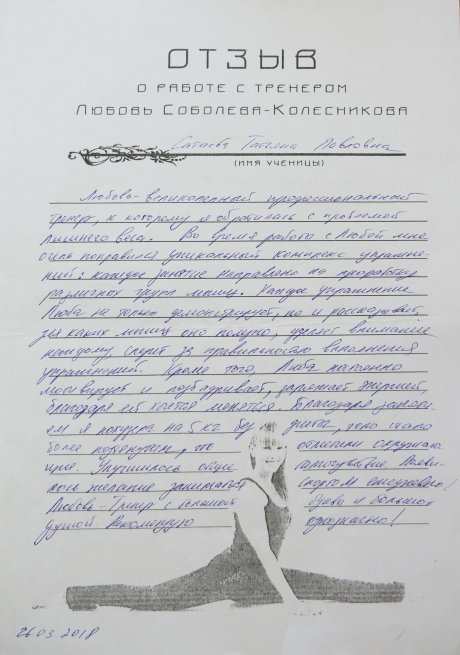 ОТЗЫВ
О РАБОТЕ С ТРЕНЕРОМ
ЛЮБОВЬ СОБОЛЕВА-КОЛЕСНИКОВА
Татьяна Павловна
(ИМЯ УЧЕНИЦЫ)
Любовь - великолепный профессиональный
тренер, к которому я обратилась с проблемой
лишнего веса. Во время работы с Любой мне
очень понравился уникальный комплекс упражне-
ний: каждое занятие направлено на проработку
различных групп мышц. Каждое упражнение
Люба не только демонстрирует, но и рассказывает,
для каких мышц оно полезно, уделяет внимание
каждому, следит за правильностью выполнения
упражнений. Кроме того, Люба постоянно
мотивирует и подбадривает, заряжает энергией,
благодаря ей хочется меняться. Благодаря заняти-
ям я похудела на 5 кг без диеты, тело стало
более подтянутым, что отметили окружаю-
щие. Улучшилось общее самочувствие. Появи-
лось желание заниматься спортом ежедневно!
Любовь - Тренер с большой буквы и большой
душой. Рекомендую однозначно!
26.03.2018